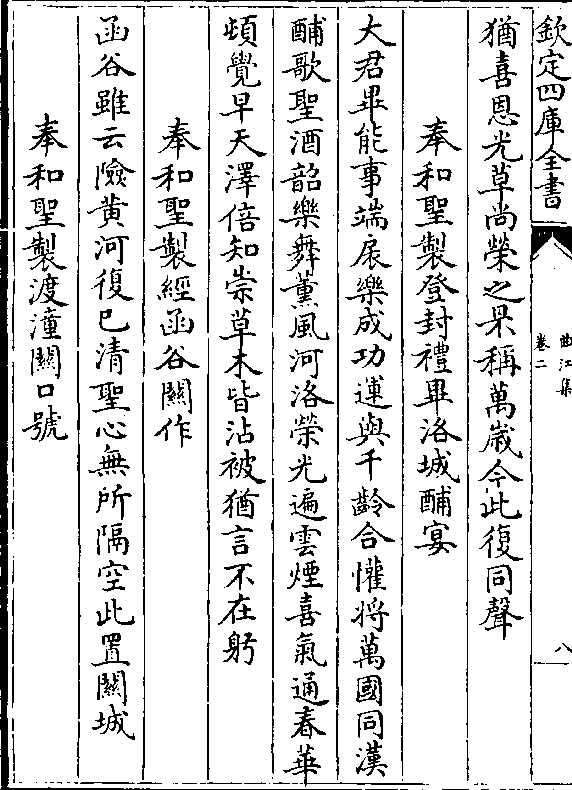 欽定四庫全書
曲江集
卷二
八
猶喜恩光草尚榮之罘稱萬嵗今此復同聲
奉和聖製登封禮畢洛城酺宴
大君畢能事端扆樂成功運與千齡合懽將萬國同漢
酺歌聖酒韶樂舞薰風河洛榮光遍雲煙喜氣通春華
頓覺早天澤倍知崇草木皆沾被猶言不在躬
奉和聖製經函谷關作
函谷雖云險黄河復巳清聖心無所隔空此置關城
奉和聖製渡潼關口號